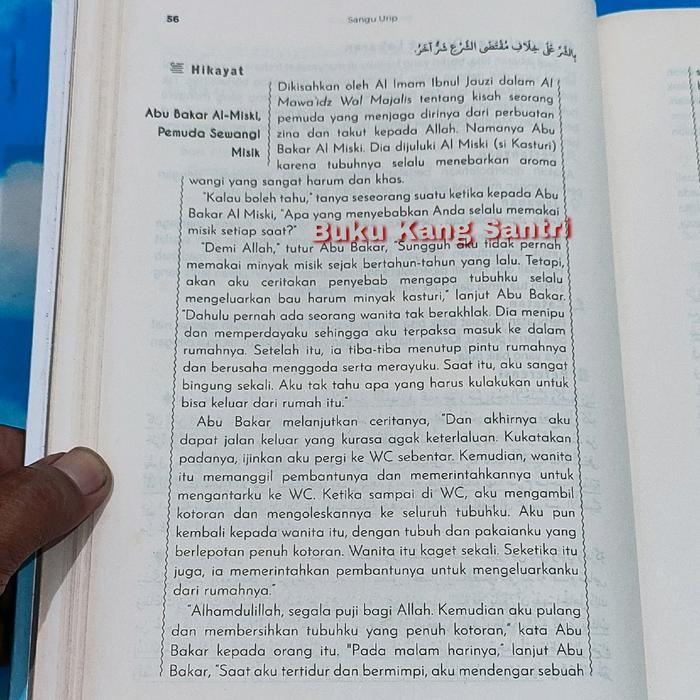 56
Sangu Urip
بِالشَّرِّ عَلَى خِلَافِ مُقْتَضَى الشَّرْعِ شَرٌّ آخَرُ.
Hikayat
Abu Bakar Al-Miski,
Pemuda Sewangi
Misik
Dikisahkan oleh Al Imam Ibnul Jauzi dalam Al
Mawa'idz Wal Majalis tentang kisah seorang
pemuda yang menjaga dirinya dari perbuatan
zina dan takut kepada Allah. Namanya Abu
Bakar Al Miski. Dia dijuluki Al Miski (si Kasturi)
karena tubuhnya selalu menebarkan aroma
wangi yang sangat harum dan khas.
"Kalau boleh tahu," tanya seseorang suatu ketika kepada Abu
Bakar Al Miski, "Apa yang menyebabkan Anda selalu memakai
misik setiap saat?"
Buku Kang Santri
"Demi Allah," tutur Abu Bakar, "Sungguh aku tidak pernah
memakai minyak misik sejak bertahun-tahun yang lalu. Tetapi,
akan aku ceritakan penyebab mengapa tubuhku selalu
mengeluarkan bau harum minyak kasturi," lanjut Abu Bakar.
"Dahulu pernah ada seorang wanita tak berakhlak. Dia menipu
dan memperdayaku sehingga aku terpaksa masuk ke dalam
rumahnya. Setelah itu, ia tiba-tiba menutup pintu rumahnya
dan berusaha menggoda serta merayuku. Saat itu, aku sangat
bingung sekali. Aku tak tahu apa yang harus kulakukan untuk
bisa keluar dari rumah itu."
Abu Bakar melanjutkan ceritanya, "Dan akhirnya aku
dapat jalan keluar yang kurasa agak keterlaluan. Kukatakan
padanya, ijinkan aku pergi ke WC sebentar. Kemudian, wanita
itu memanggil pembantunya dan memerintahkannya untuk
mengantarku ke WC. Ketika sampai di WC, aku mengambil
kotoran dan mengoleskannya ke seluruh tubuhku. Aku pun
kembali kepada wanita itu, dengan tubuh dan pakaianku yang
berlepotan penuh kotoran. Wanita itu kaget sekali. Seketika itu
juga, ia memerintahkan pembantunya untuk mengeluarkanku
dari rumahnya."
"Alhamdulillah, segala puji bagi Allah. Kemudian aku pulang
dan membersihkan tubuhku yang penuh kotoran," kata Abu
Bakar kepada orang itu. "Pada malam harinya," lanjut Abu
Bakar, "Saat aku tertidur dan bermimpi, aku mendengar sebuah